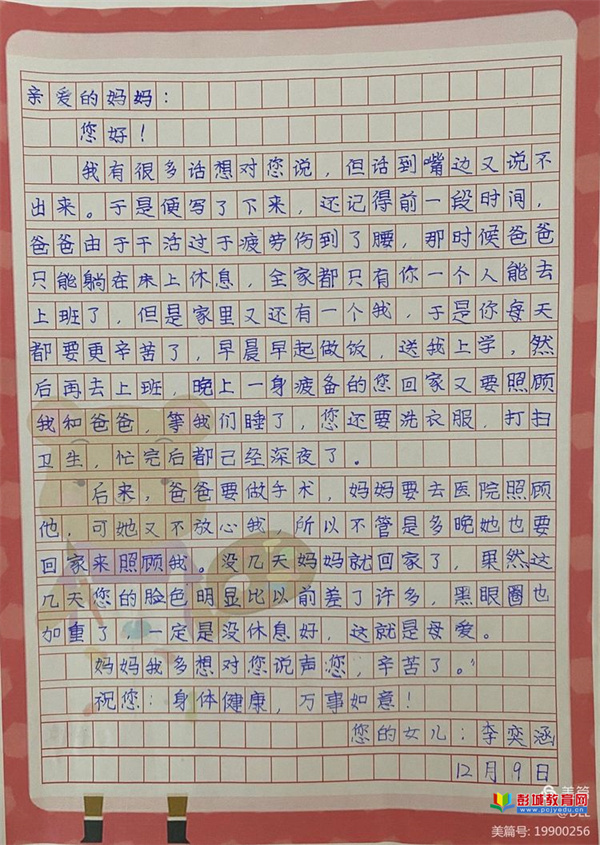 亲爱的妈妈：
您好！
我有很多话想对您说，但话到嘴边又说不
出来。于是便写了下来，还记得前一段时间，
爸爸由于干活过于疲劳伤到了腰，那时候爸爸
只能躺在床上休息，全家都只有你一个人能去
上班了，但是家里又还有一个我，于是你每天
都要更辛苦了，早晨早起做饭，送我上学，然
后再去上班，晚上一身疲备的您回家又要照顾
我和爸爸，等我们睡了，您还要洗衣服，打扫
卫生，忙完后都已经深夜了。
后来，爸爸要做手术，妈妈要去医院照顾
他，可她又不放心我，所以不管是多晚她也要
回家来照顾我。没几天妈妈就回家了，果然这
几天您的脸色明显比以前差了许多，黑眼圈也
加重了，一定是没休息好，这就是母爱。
妈妈我多想对您说声您，辛苦了。
祝您：身体健康，万事如意！
您的女儿：李奕涵
12月9日
美篇
彭城教育网
www.pcjyedu.cn
美篇号: 19900256